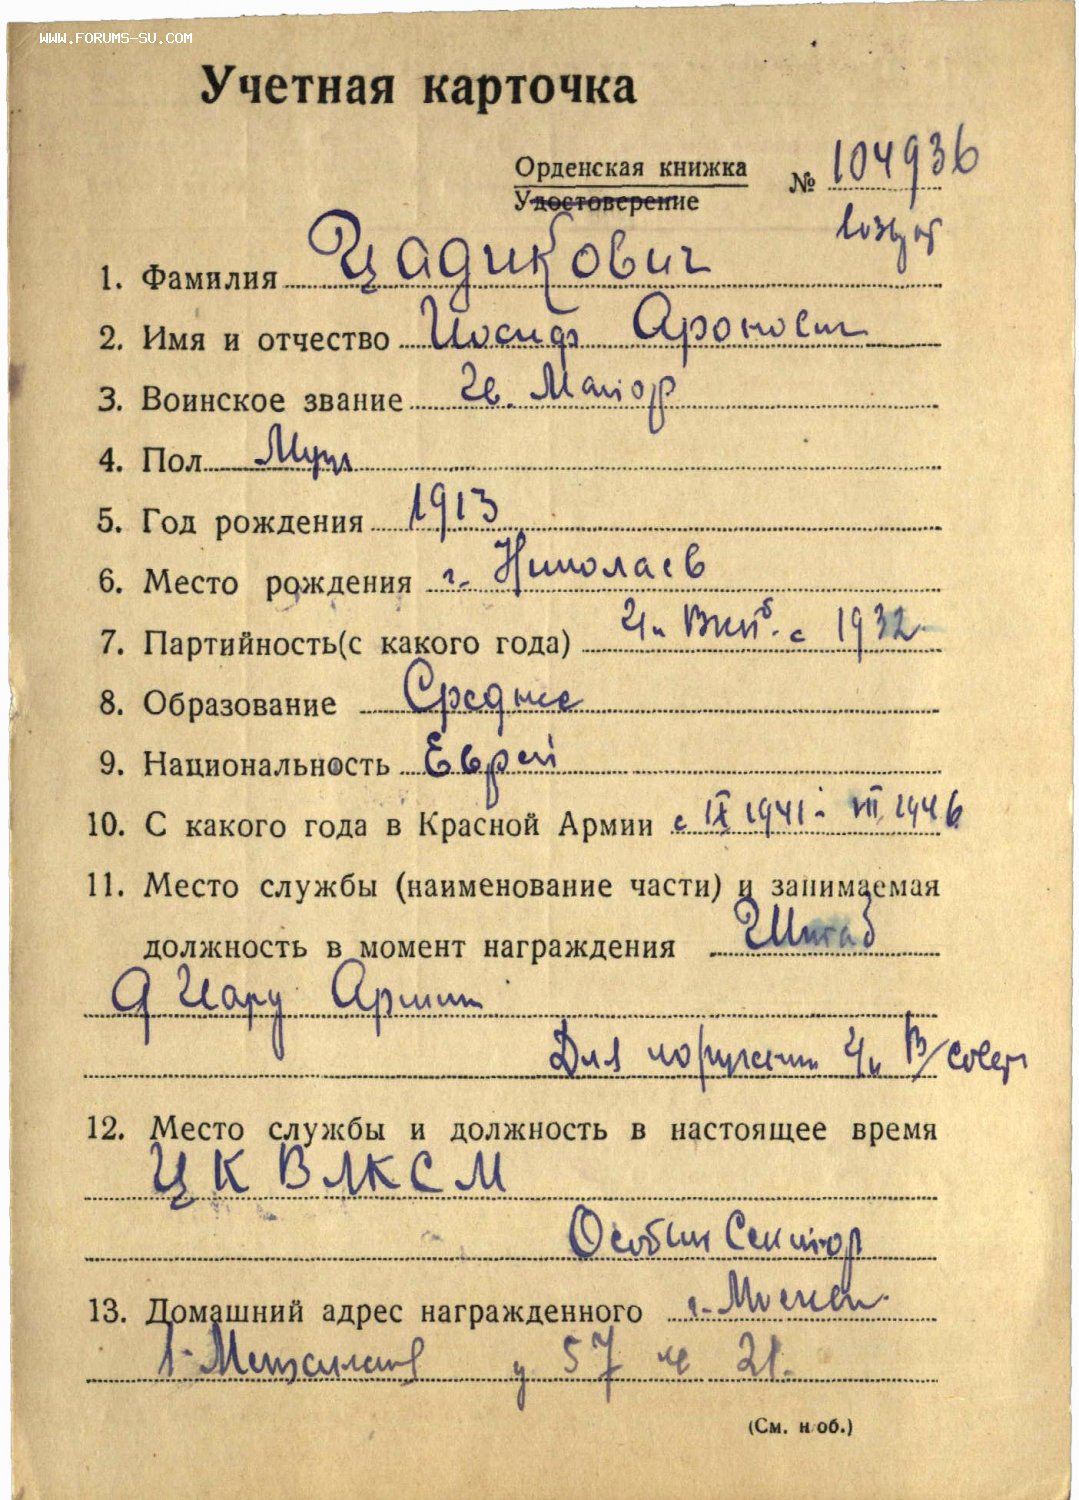 WWW.FORUMS-SU.COM
Учетная карточка
Орденская книжка
Удостоверение
№ 104936
1. Фамилия Цадикович
2. Имя и отчество Иосиф Аронович
3. Воинское звание Гв. Майор
4. Пол Муж
5. Год рождения 1913
6. Место рождения г. Николаев
7. Партийность(с какого года) Чл ВКПб. с 1932.
8. Образование Среднее
9. Национальность Еврей
10. С какого года в Красной Армии с IX 1941 - VII 1946
11. Место службы (наименование части) и занимаемая
должность в момент награждения Штаб
Армии
Для В/совет
12. Место службы и должность в настоящее время
ЦК ВЛКСМ
Особый Сектор
13. Домашний адрес награжденного г. Москва.
57 21.
(См. н об.)